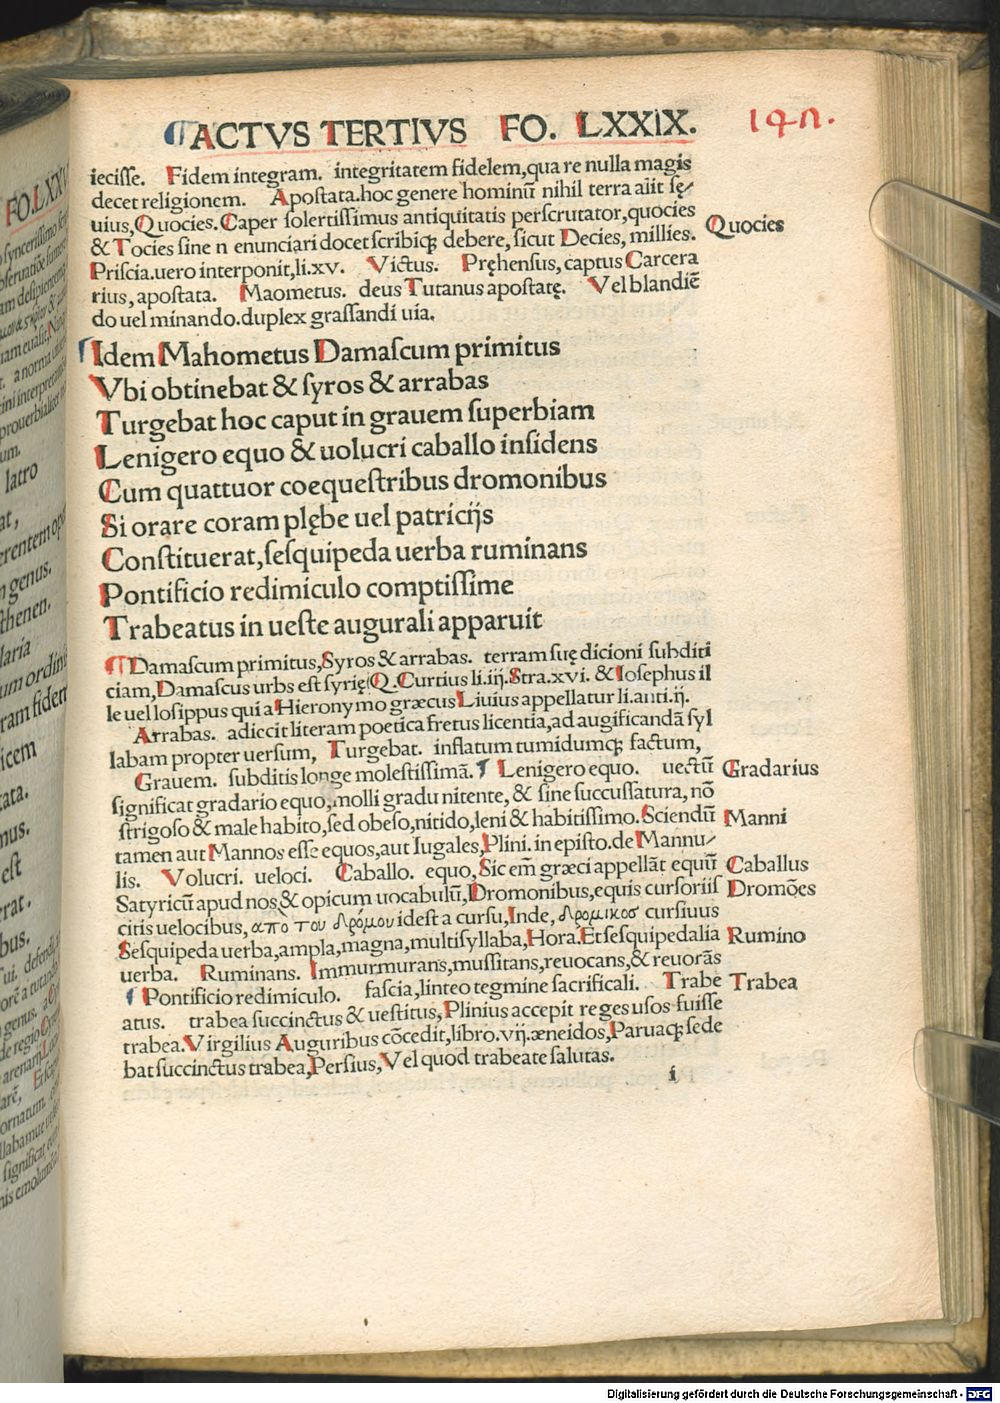 ACTVS TERTIVS FO. LXXIX. 147.
iecisse. Fidem integram. integritatem fidelem,qua re nulla magis
decet religionem. Apostata.hoc genere hominũ nihil terra alit sę/
uius,Quocies.Caper solertissimus antiquitatis perscrutator,quocies Quocies
& Tocies sine n enunciari docet scribiq; debere,sicut Decies, millies.
Priscia.uero interponit,li.xv. Victus. Pręhensus,captus Carcera
rius, apostata. Maometus. deus Tutanus apostatę. Vel blandiẽ
do uel minando.duplex grassandi uia.
Idem Mahometus Damascum primitus
Vbi obtinebat & syros & arrabas
Turgebat hoc caput in grauem superbiam
Lenigero equo & uolucri caballo insidens
Cum quattuor coequestribus dromonibus
Si orare coram plębe uel patricijs
Constituerat,sesquipeda uerba ruminans
Pontificio redimiculo comptissime
Trabeatus in ueste augurali apparuit
Damascum primitus,Syros & arrabas. terram suę dicioni subditi
ciam,Damascus urbs est syrię(Q.Curtius li.iij.Stra.xvi. & Iosephus il
le uel Iosippus qui a Hieronymo græcus Liuius appellatur li.anti.ij.
Arrabas. adiecit literam poetica fretus licentia,ad augificandã syl
labam propter uersum, Turgebat. inflatum tumidumq; factum,
Grauem. subditis longe molestissimã. Lenigero equo. uectũ Gradarius
significat gradario equo,molli gradu nitente, & sine succussatura, nõ
strigoso & male habito,sed obeso,nitido,leni & habitissimo.Sciendũ Manni
tamen aut Mannos esse equos,aut Iugales,Plini. in episto.de Mannu/
lis. Volucri. ueloci. Caballo. equo,Sic em̃ græci appellãt equũ Caballus
Satyricũ apud nos & opicum uocabulũ,Dromonibus,equis cursoriis Dromões
citis uelocibus, απο του δρόμου idest a cursu,Inde, δρομικοσ cursiuus
Sesquipeda uerba,ampla,magna,multisyllaba,Hora.Et sesquipedalia Rumino
uerba. Ruminans. Immurmurans,mussitans,reuocans,& reuorãs
Pontificio redimiculo. fascia,linteo tegmine sacrificali. Trabe Trabea
atus. trabea succinctus & uestitus,Plinius accepit reges usos fuisse
trabea.Virgilius Auguribus cõcedit,libro.vij.æneidos,Paruaq; sede
bat succinctus trabea,Persius,Vel quod trabeate salutas.
i
Digitalisierung gefördert durch die Deutsche Forschungsgemeinschaft - DFG